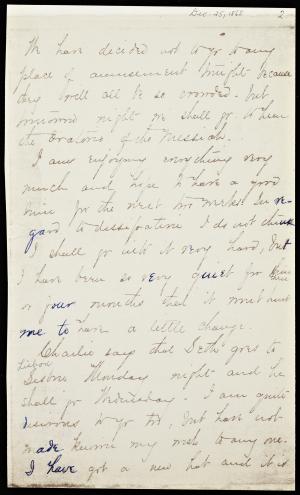 Dec. 25, 1868 2
We have decided not to go to any
place of amusement tonight because
they will all be so crowded. but
tomorrow night we shall go to hear
the Oratorio of the Messiah.
I am enjoying everything very
much and hope to have a good
time for the next two weeks. In re-
gard to dissipation I do not think
I shall go into it very hard, but
I have been so very quiet for three
or four months that it must
me to have a little change.
Charlie says that Seth goes to
Lisbon
Lisbon Monday night and he
shall go Wednesday. I am quite
to go too, but have not
made known my wish to any one.
I have got a new hat and it is